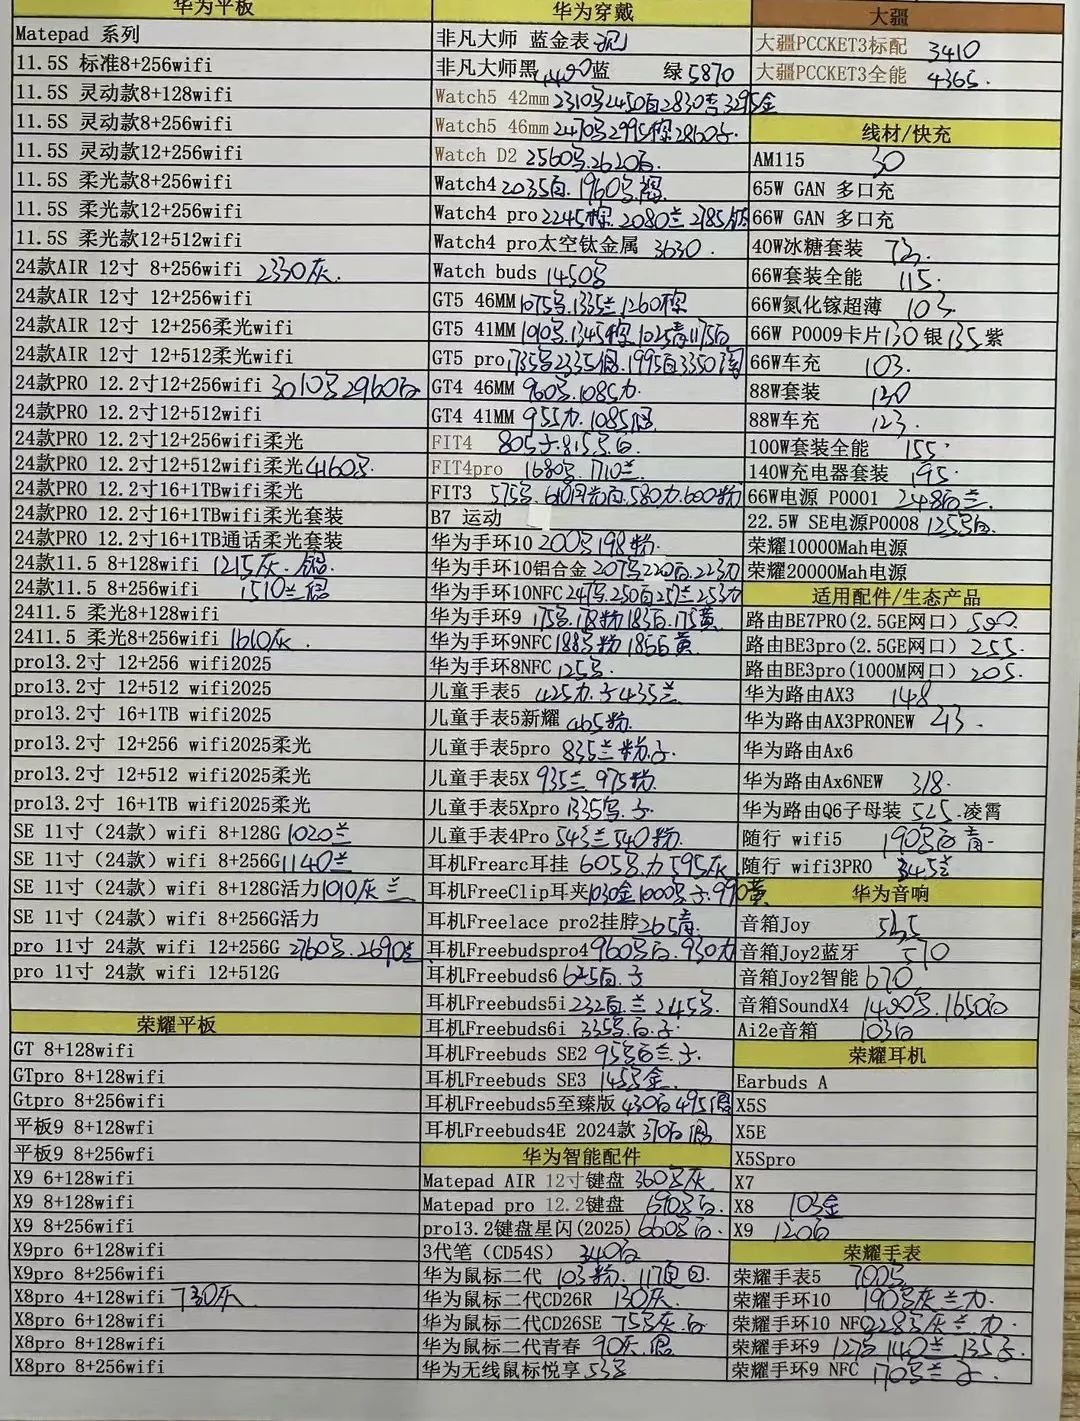 华为平板
Matepad 系列
11.5S 标准8+256wifi
11.5S 灵动款8+128wifi
11.5S 灵动款8+256wifi
11.5S 灵动款12+256wifi
11.5S 柔光款8+256wifi
11.5S 柔光款12+256wifi
11.5S 柔光款12+512wifi
24款AIR 12寸 8+256wifi 2330灰.
24款AIR 12寸 12+256wifi
24款AIR 12寸 12+256柔光wifi
24款AIR 12寸 12+512柔光wifi
24款PRO 12.2寸12+256wifi 3010 2960白
24款PRO 12.2寸12+512wifi
24款PRO 12.2寸12+256wifi柔光
24款PRO 12.2寸12+512wifi柔光 4160
24款PRO 12.2寸16+1TBwifi柔光
24款PRO 12.2寸16+1TBwifi柔光套装
24款PRO 12.2寸16+1TB通话柔光套装
24款11.5 8+128wifi 1215灰.
24款11.5 8+256wifi 1510兰
2411.5 柔光8+128wifi
2411.5 柔光8+256wifi 1610灰.
pro13.2寸 12+256 wifi2025
pro13.2寸 12+512 wifi2025
pro13.2寸 16+1TB wifi2025
pro13.2寸 12+256 wifi2025柔光
pro13.2寸 12+512 wifi2025柔光
pro13.2寸 16+1TB wifi2025柔光
SE 11寸（24款）wifi 8+128G 1020兰
SE 11寸（24款）wifi 8+256G 1140兰
SE 11寸（24款）wifi 8+128G活力 1010灰兰
SE 11寸（24款）wifi 8+256G活力
pro 11寸 24款 wifi 12+256G 2760 . 2690兰
pro 11寸 24款 wifi 12+512G
荣耀平板
GT 8+128wifi
GTpro 8+128wifi
Gtpro 8+256wifi
平板9 8+128wfi
平板9 8+256wfi
X9 6+128wifi
X9 8+128wifi
X9 8+256wifi
X9pro 6+128wifi
X9pro 8+256wifi
X8pro 4+128wifi 730灰.
X8pro 6+128wifi
X8pro 8+128wifi
X8pro 8+256wifi
华为穿戴
非凡大师 蓝金表
非凡大师黑 蓝 绿 5870
Watch5 42mm 2310 2450白 2830 3295金
Watch5 46mm 2470 2995棕 2860
Watch D2 2560 . 2620白.
Watch4 2035白. 1960
Watch4 pro 2245棕. 2080兰 2185
Watch4 pro太空钛金属 3630.
Watch buds 1450
GT5 46MM 1075 . 1335兰 1260棕
GT5 41MM 1010 . 1345棕. 1025青 1175白
GT5 pro 1735 2335 . 1995白 3350
GT4 46MM 960 . 1085力.
GT4 41MM 955力. 1085
FIT4 805 . 815 白
FIT4pro 1680 . 1710兰
FIT3 575 . 610月光白. 580力. 600粉
B7 运动
华为手环10 200 198粉.
华为手环10铝合金 207 220白. 223力
华为手环10NFC 247 . 250白 257兰 253力
华为手环9 175 . 178粉 183白. 175黄
华为手环9NFC 188 粉 185白黄
华为手环8NFC 125
儿童手表5 425力. 435兰
儿童手表5新耀 465粉.
儿童手表5pro 835兰粉.
儿童手表5X 935兰 975粉.
儿童手表5Xpro 1335
儿童手表4Pro 545兰 540粉.
耳机Frearc耳挂 605 .力 595灰
耳机FreeClip耳夹 1030金 1000 990黄
耳机Freelace pro2挂脖 265青.
耳机Freebudspro4 960 白. 930力
耳机Freebuds6 625白.
耳机Freebuds5i 232白兰 245
耳机Freebuds6i 335 白.
耳机Freebuds SE2 95 白兰
耳机Freebuds SE3 145 金.
耳机Freebuds5至臻版 430白 495
耳机Freebuds4E 2024款 370白
华为智能配件
Matepad AIR 12寸键盘 360 灰.
Matepad pro 12.2键盘 690 白.
pro13.2键盘星闪(2025) 660 白.
3代笔（CD54S） 340白
华为鼠标二代 103粉. 117
华为鼠标二代CD26R 130灰.
华为鼠标二代CD26SE 75 灰.白
华为鼠标二代青春 90灰.
华为无线鼠标悦享 53
大疆
大疆PCCKET3标配 3410
大疆PCCKET3全能 4365.
线材/快充
AM115 30
65W GAN 多口充
66W GAN 多口充
40W冰糖套装 73.
66W套装全能 115.
66W氮化镓超薄 103.
66W P0009卡片 130 银 135 紫
66W车充 103.
88W套装 130
88W车充 123.
100W套装全能 155.
140W充电器套装 195.
66W电源 P0001 248白兰.
22.5W SE电源P0008 125 白.
荣耀10000Mah电源
荣耀20000Mah电源
适用配件/生态产品
路由BE7PRO(2.5GE网口) 500.
路由BE3pro(2.5GE网口) 255.
路由BE3pro(1000M网口) 205.
华为路由AX3 148
华为路由AX3PRONEW 213.
华为路由Ax6
华为路由Ax6NEW 318.
华为路由Q6子母装 525.凌霄
随行 wifi5 190 白青.
随行 wifi3PRO 345兰
华为音响
音箱Joy 545
音箱Joy2蓝牙 570
音箱Joy2智能 670
音箱SoundX4 1400 . 1650白
Ai2e音箱 103白
荣耀耳机
Earbuds A
X5S
X5E
X5Spro
X7
X8 103金
X9 120白
荣耀手表
荣耀手表5 700
荣耀手环10 190 灰兰力.
荣耀手环10 NFC 228 灰兰.力.
荣耀手环9 127 140兰.135
荣耀手环9 NFC 170 兰